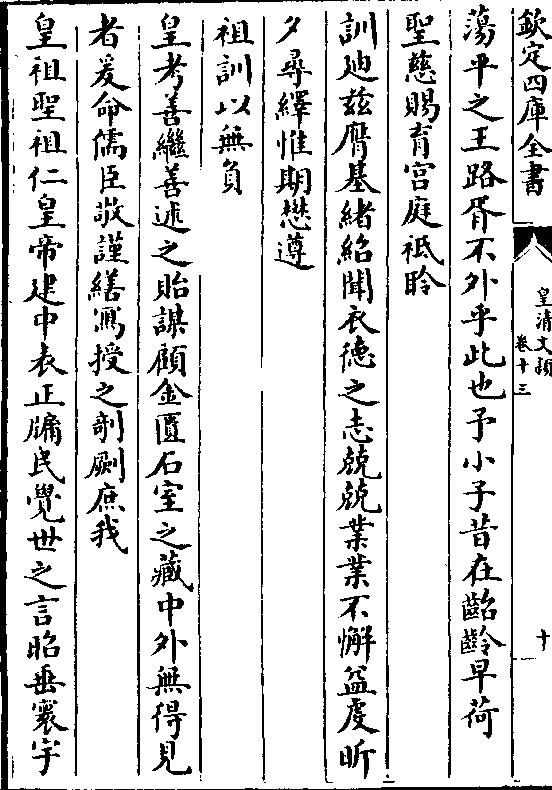 欽定四庫全書
皇清文穎
卷十三
十
蕩平之王路胥不外乎此也予小子昔在齠齡早荷
聖慈賜育宮庭祗聆
訓廸兹膺基緒紹聞衣德之志兢兢業業不懈益虔昕
夕尋繹惟期懋遵
祖訓以無負
皇考善繼善述之貽謀顧金匱石室之藏中外無得見
者爰命儒臣敬謹繕寫授之剞劂庶我
皇祖聖祖仁皇帝建中表正牖民覺世之言昭垂寰宇